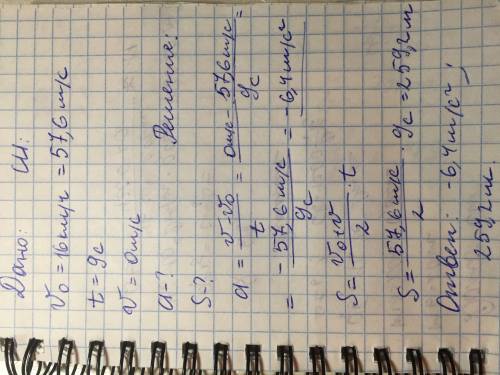 Дано: СИ:
V₀ = 16 м/ч = 57,6 м/с
t = 9c
V = 0 м/с
a - ?
S - ?
Решение:
a = (V - V₀)/t = (0 м/с - 57,6 м/с)/9с =
= - 57,6 м/с / 9с = -6,4 м/с²
S = (V₀ + V)/2 · t
S = 57,6 м/с / 2 · 9с = 259,2 м
Ответ: -6,4 м/с²;
259,2 м.